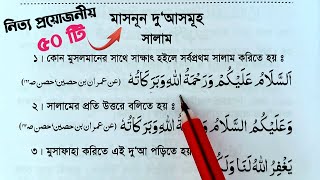 নিত্য প্রয়োজনীয়
৫০ টি
মাসনূন দু'আসমূহ
সালাম
১। কোন মুসলমানের সাথে সাক্ষাৎ হইলে সর্বপ্রথম সালাম করিতে হয় ঃ
اَلسَّلَامُ عَلَيْكُمْ وَرَحْمَةُ اللهِ وَبَرَكَاتُهٗ (عن عمران بن حصين/حصن صـ
২। সালামের প্রতি উত্তরে বলিতে হয় ঃ
وَعَلَيْكُمُ السَّلَامُ وَرَحْمَةُ اللهِ وَبَرَكَاتُهٗ (عن عمران بن حصين/حصن صـ
৩। মুসাফাহা করিতে এই দু'আ পড়িতে হয় ঃ
يَغْفِرُ اللهُ لَنَا وَلَكُمْ